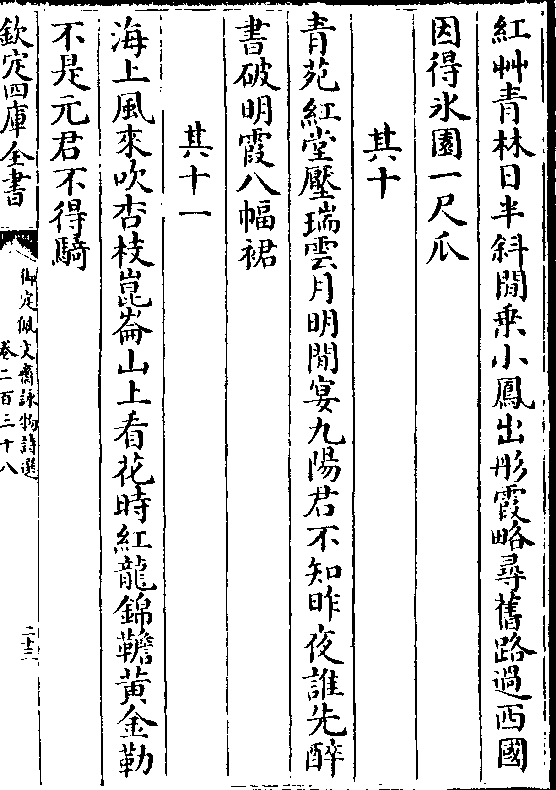 紅艸青林日半斜閒乗小鳳出彤霞略尋舊路過西國
因得氷園一尺瓜
其十
青苑紅堂壓瑞雲月明閒宴九陽君不知昨夜誰先醉
書破明霞八幅裙
其十一
海上風來吹杏枝崑崙山上看花時紅龍錦韂黄金勒
不是元君不得騎
欽定四庫全書
御定佩文齋詠物詩選
卷二百三十八
二十三